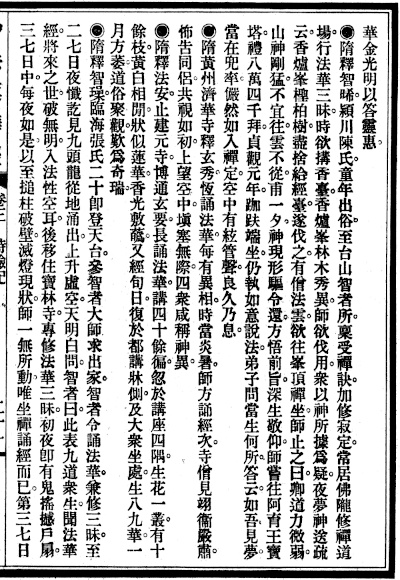 華金光明以答靈惠
●隋釋智晞潁川陳氏童年出俗至台山智者所稟受禪訣加修寂定常居佛隴修禪道
場行法華三昧時欲搆香臺香爐峯林木秀異師欲伐用衆以神所據爲疑夜夢神送疏
云香爐峯檉柏樹盡捨給經臺遂伐之有僧法雲欲往峯頂禪坐師止之曰卿道力微弱
山神剛猛不宜往雲不從甫一夕神現形驅令還方悟前旨深生敬仰師嘗往阿育王寶
塔禮八萬四千拜貞觀元年跏趺端坐仍執如意說法弟子問當生何所答云如吾見夢
當在兜率儼然如入禪定空中有絃管聲良久乃息
●隋黃州濟華寺釋玄秀恆誦法華每有異相時當炎暑師方誦經次寺僧見翊衞嚴肅
怖告同侶共視如初上望空中塡塞無際四衆咸稱神異
●隋釋法安止建元寺博通玄要長誦法華講四十餘徧忽於講座四隅生花一叢有十
餘枝黃白相閒狀似蓮華香光敷蘊又經旬日復於都講牀側及大衆坐處生八九華一
月方萎道俗聚觀歎爲奇瑞
●隋釋智璪臨海張氏二十卽登天台參智者大師求出家智者令誦法華兼修三昧至
二七日夜懺訖見九頭龍從地涌出上升虛空天明白問智者曰此表九道衆生聞法華
經將來之世破無明入法性空耳後移住寶林寺專修法華三昧初夜卽有鬼搖撼戸扇
三七日中每夜如是以至搥柱破壁滅燈現狀師一無所動唯坐禪誦經而已第三七日